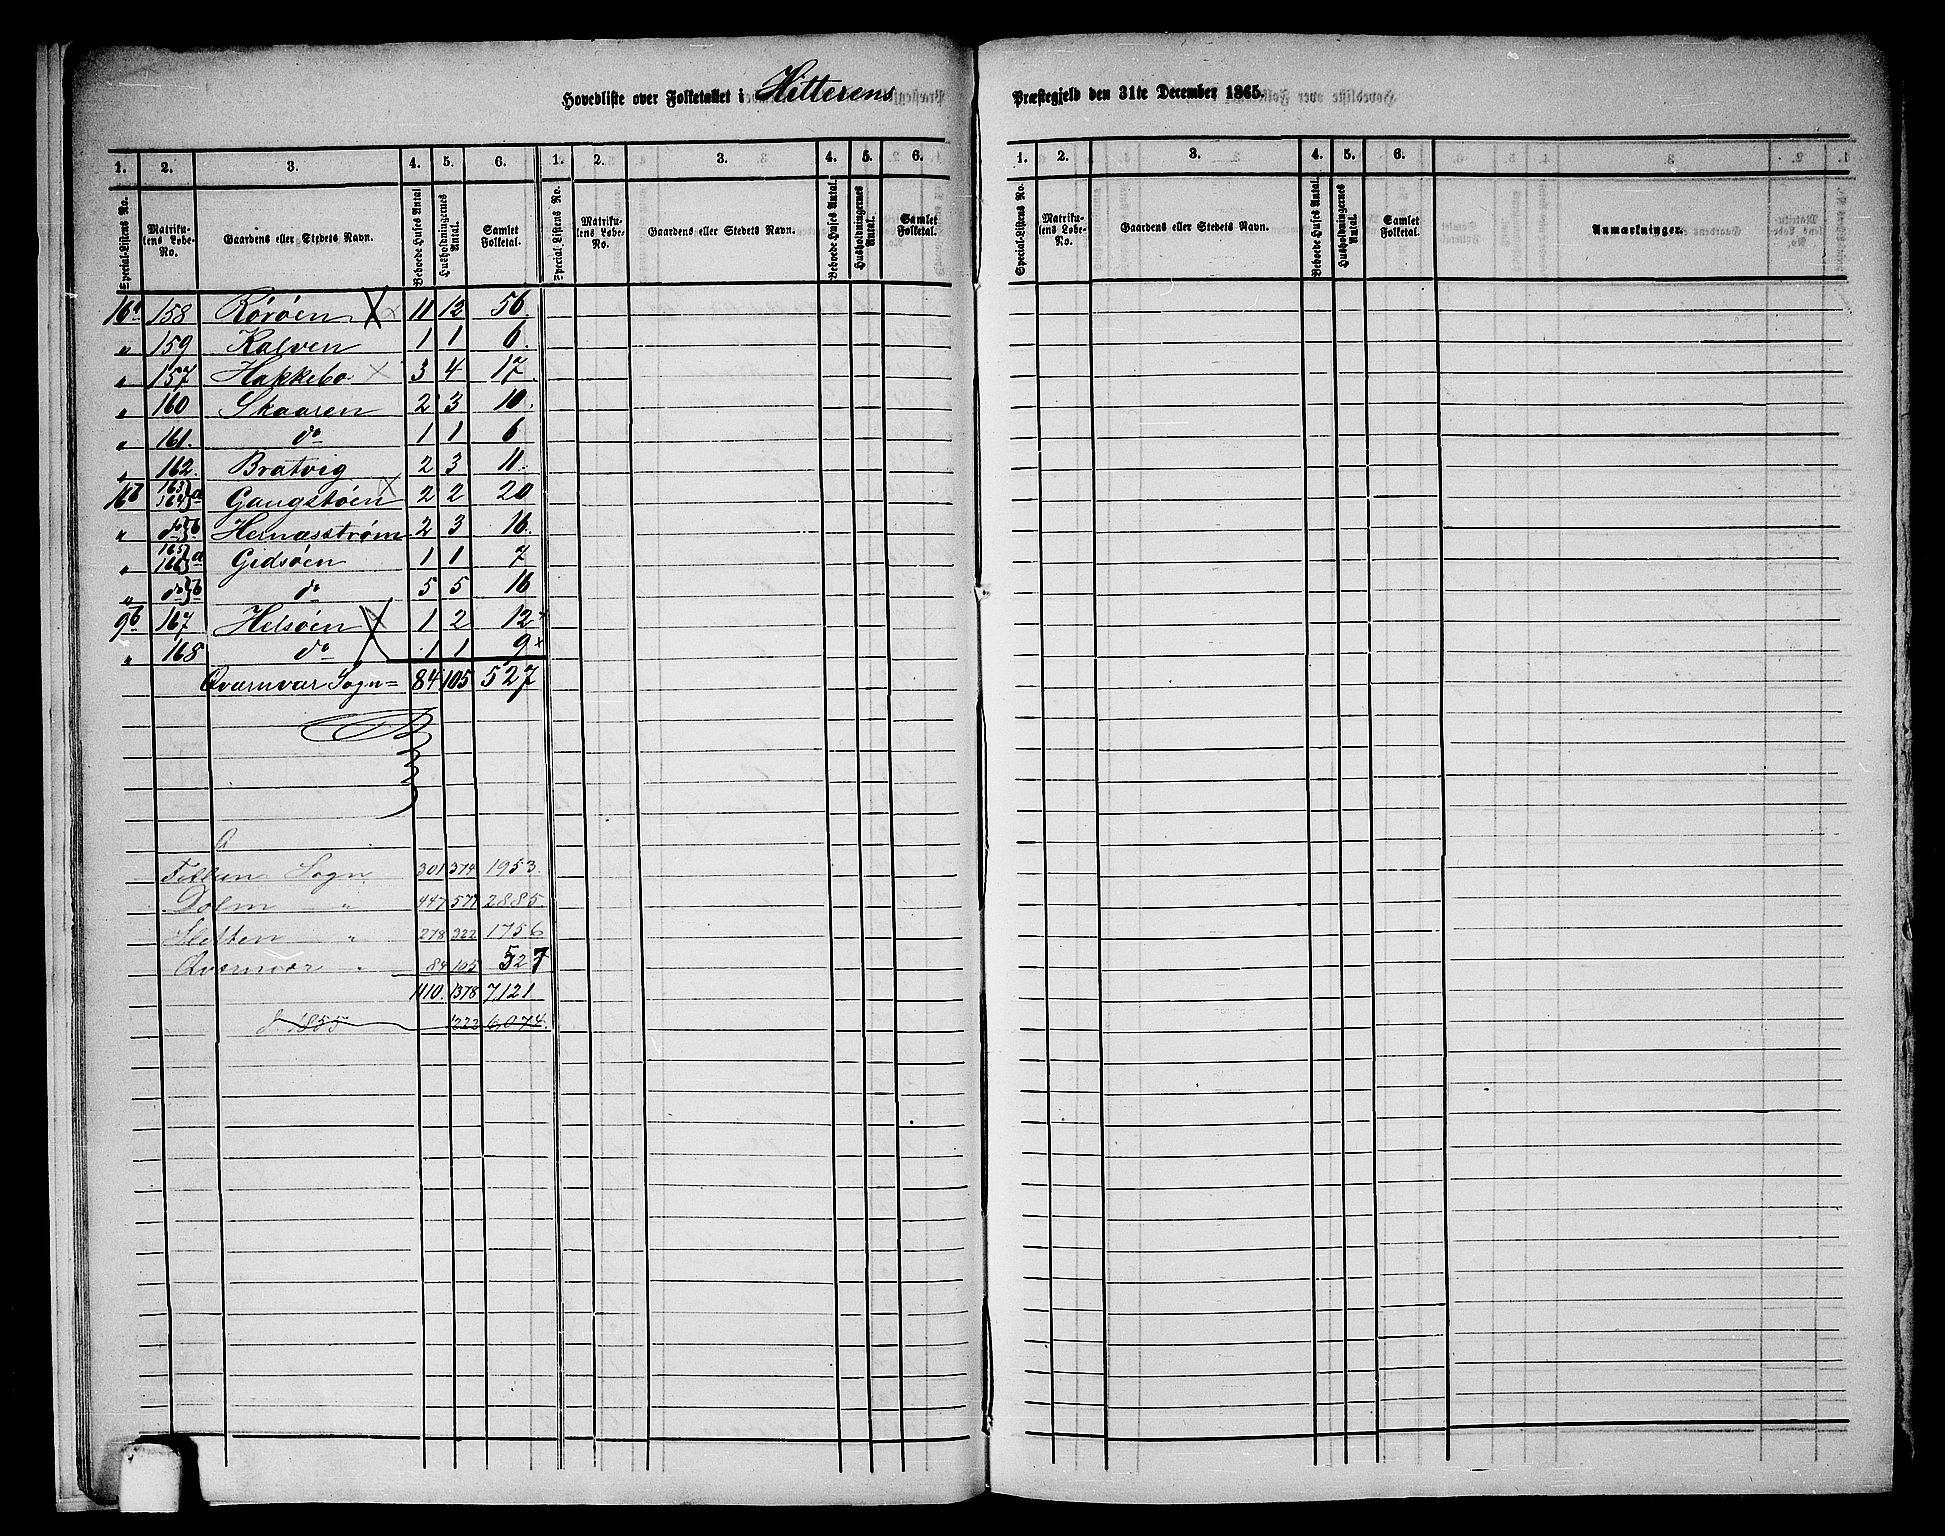 Hovedliste over Folketallet i Hitterens Præstegjeld den 31te December 1865.
1. 2. 3. 4. 5. 6. 1. 2. 3. 4. 5. 6. 1. 2. 3. 4. 5. 6.
Special-Listens No. Matrikulens Løbe-No. Gaardens eller Stedets Navn. Beboede Huses Antal Husholdningernes Antal. Samlet Folketal. Special-Listens No. Matrikulens Løbe-No. Gaardens eller Stedets Navn. Beboede Huses Antal. Husholdningernes Antal. Samlet Folketal. Special-Listens No. Matrikulens Løbe-No. Gaardens eller Stedets Navn. Beboede Huses Antal. Husholdningernes Antal. Samlet Folketal. Anmærkninger.
16a 158 Røröen X x 11 12 56
" 159 Kalven 1 1 6
" 157 Hakkebo x 3 4 17
" 160 Skaaren 2 3 10
" 161. do 1 1 6
" 162. Bratvig 2 3 11.
16b 163 164 } a Gaugstøen x 2 2 20
" do } b Hernæsstrøm 2 3 16.
" 165 166 } a Gidsöen 1 1 7
" do } b do 5 5 16
9b 167 Helsöen X 1 2 12 x
" 168 do 1 1 9 x
Qvarnvær Sogn = 84 105 527
Fillan Sogn 301 374 1953.
Dolm " 447 577 2885
Sletten " 278 322 1756
Qvarnvær " 84 105 527
1110. 1378 7,121
d 1855 1222 6,074.